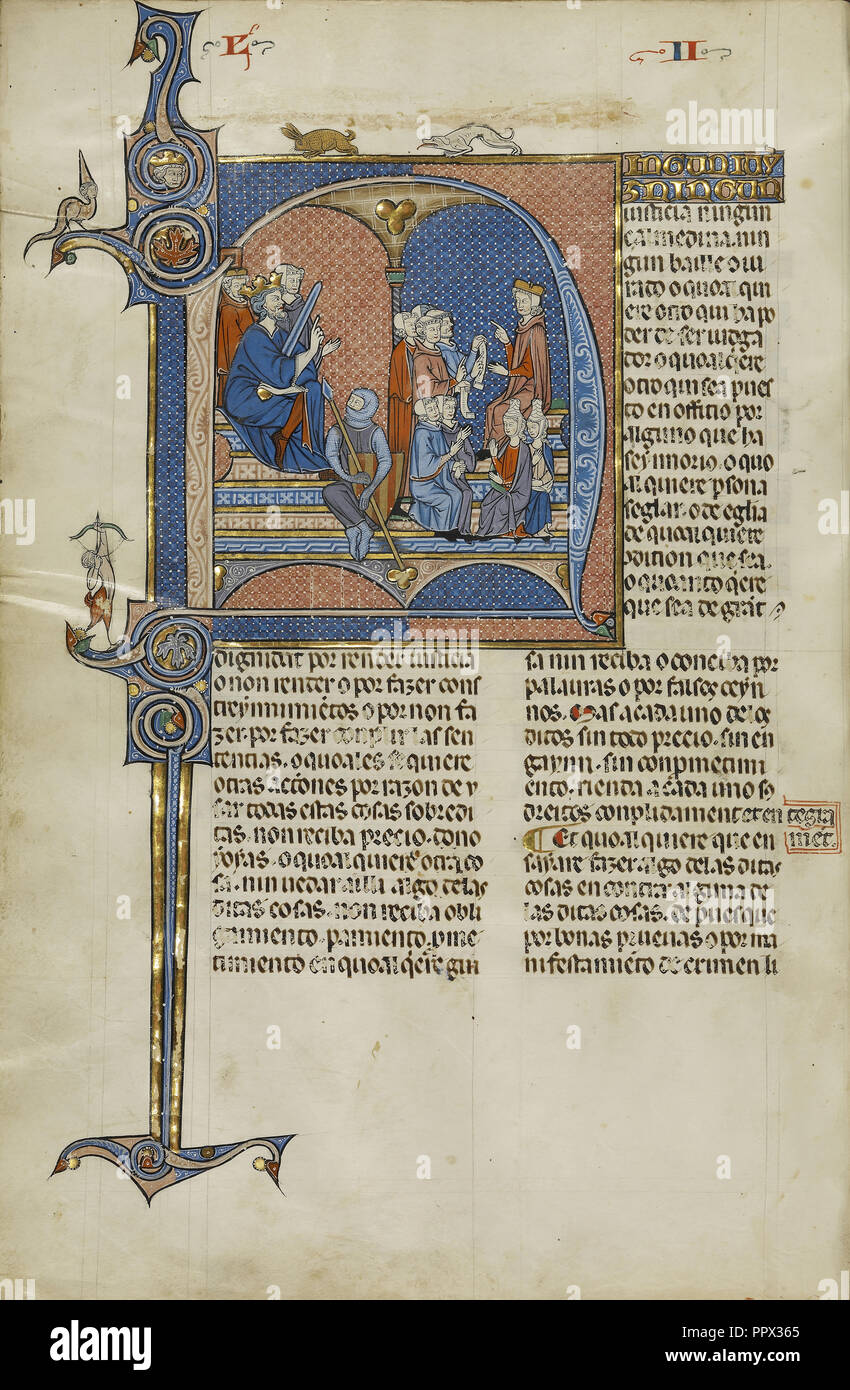 L II
INGUN IUY
ZN INGUN
iusticia ningun
çalmedina nin
gun baille o iu
rado o quoal qui
ere otro qui ha po
der de ser iudga
dor o quoal q̃ere
otro qui sea pues
to en officio por
alguno que ha
seynnorio. o quo
al quiere p̃sona
seglar. o de eglia
de quoal quiere
condition que sea.
o quoanto q̃ere
que sea de grãt
dignidat por render iusticia
o non render o por fazer cons
treynnimiẽtos o por non fa
zer. por fazer las sen
tencias. o quoales se quiere
otras actiones por razon de y
sar todas estas cosas sobredi
tas. non reciba precio. dono
ioyas. o quoal quiere otra co
sa. nin uedar ailli algo delas
ditas cosas. non reciba obli
gamiento. pamiento. p̃me
timiento en quoal q̃ere gui
sa nin reciba o conciba por
palauras o por falses ceyn
nos. Mas a cada uno delos
ditos sin todo precio. sin en
gaynn. sin conpmetimi
ento. rienda a cada uno so
dreitos conplidament et en tegra
mẽt.
Et quoal quiere que en
sayare fazer algo delas ditas
cosas en contra alguna de
las ditas cosas. de pues que
por bonas prueuas o por ma
nifestamiẽto de crimen li
alamy
alamy
Image ID: PPX365
www.alamy.com